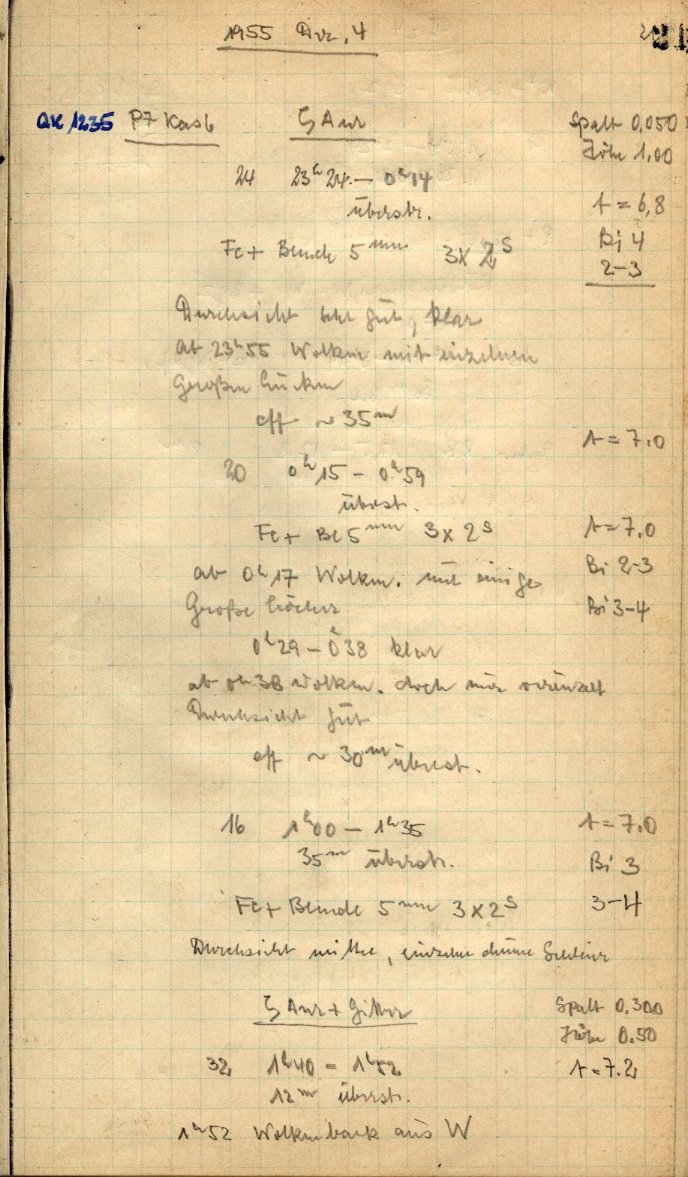 1955 Dez. 4
21
QK 1235 P7 Kas6 ζ Aur Spalt 0,050
Höhe 1.00
24 23h 24 – 0h 14
überstr. t = 6,8
Bi 4
Fe + Blende 5mm 3 x 2s 2-3
Durchsicht sehr gut, klar
ab 23h 55 Wolken mit einzelnen
großen Lücken
eff ~ 35m
t = 7.0
20 0h 15 – 0h 59
überst.
Fe + Bl 5mm 3 x 2s t = 7.0
ab 0h 17 Wolken. mit einige Bi 2-3
Große Löcher Bi 3-4
0h 29 – 0h 38 klar
ab 0h 38 Wolken. doch nur vereinzelt
Durchsicht gut
eff ~ 30m überst.
16 1h 00 – 1h 35 t = 7.0
35m überstr. Bi 3
Fe + Blende 5mm 3 x 2s 3-4
Durchsicht mittel, einzelne dünne Schleier
ζ Aur + Gitter Spalt 0.300
Höhe 0.50
32 1h 40 – 1h 52 t = 7.2
12m überstr.
1h 52 Wolkenbank aus W